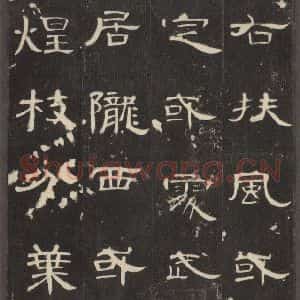 右扶風或
定或處武
居隴西或
煌枝分葉
Shufawang.CN